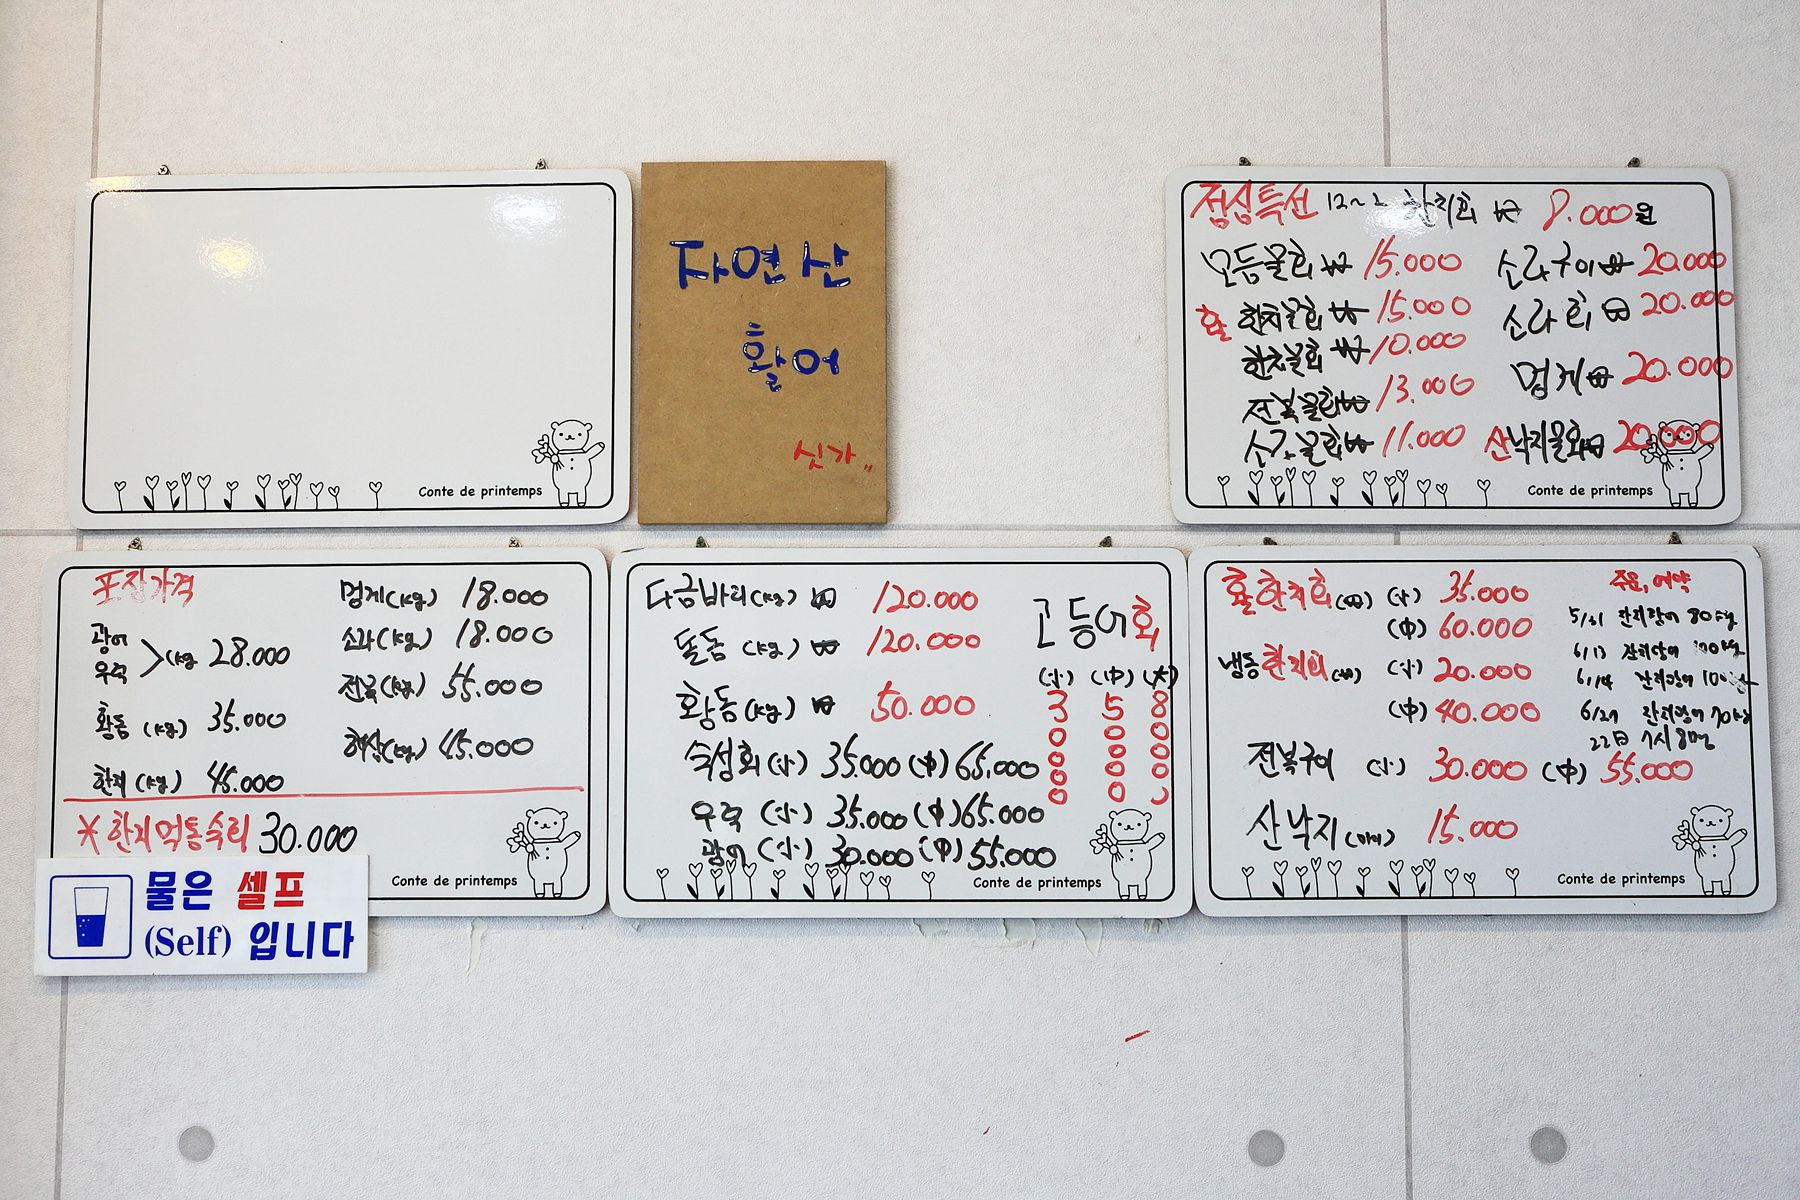 Conte de printemps
자연산
활어
싯가"
점심특선 12~2 한치회 ₩ 8.000원
모듬물회 ₩ 15.000
활 한치물회 ₩ 15.000
한치물회 ₩ 10.000
전복물회 ₩ 13.000
소라물회 ₩ 11.000
소라구이 ₩ 20.000
소라회 ₩ 20.000
멍게 ₩ 20.000
산낙지물회 ₩ 20.000
Conte de printemps
포장가격
광어
우럭 > (kg) 28.000
황돔 (kg) 35.000
한치 (kg) 45.000
멍게(kg) 18.000
소라(kg) 18.000
전복(kg) 55.000
해삼(kg) 45.000
*한치먹통숙회 30.000
Conte de printemps
물은 셀프
(Self) 입니다
다금바리(kg) ₩ 120.000
돌돔 (kg) ₩ 120.000
황돔(kg) ₩ 50.000
숙성회(小) 35.000 (中) 65.000
우럭 (小) 35.000 (中) 65.000
광어 (小) 30.000 (中) 55.000
고등어회
(小) (中) (大)
3 5 8
0 0 0
0 0 0
0 0 0
0 0 0
Conte de printemps
활한치회 (小) 35.000
(中) 60.000
냉동한치회 (小) 20.000
(中) 40.000
전복구이 (小) 30.000 (中) 55.000
산낙지 (마리) 15.000
주요, 예약
5/31 잔치광어 80
6/13 잔치광어
6/14 잔치광어
6/27 잔치광어 70kg
22日 7시 8명
Conte de printemps